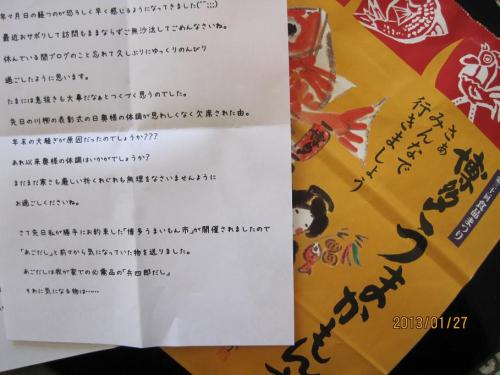 年で月日の経つのが恐ろしく早く感じるようになってきました(^^;;;)
最近おサボリして訪問もままならずご無沙汰してごめんなさいね。
休んでいる間ブログのこと忘れて久しぶりにゆっくりのんびり
過ごしたように思います。
たまには息抜きも大事だなぁとつくづく思うのでした。
先日の川柳の表彰式の日奥様の体調が思わしくなく欠席された由。
年末の大騒ぎが原因だったのでしょうか???
あれ以来奥様の体調はいかがでしょうか?
まだまだ寒さも厳しい折くれぐれも無理をなさいませんように
お過ごしくださいね。
さて先日私が勝手にお約束した「博多うまいもん市」が開催されましたので
「あごだし」と前々から気になっていた物を送りました。
あごだしは我が家での必需品の「兵四郎だし」
それに気になる物は……
さあ
みんなで
行きましょう
博多
うまかもん
食品まつり
2013/01/27